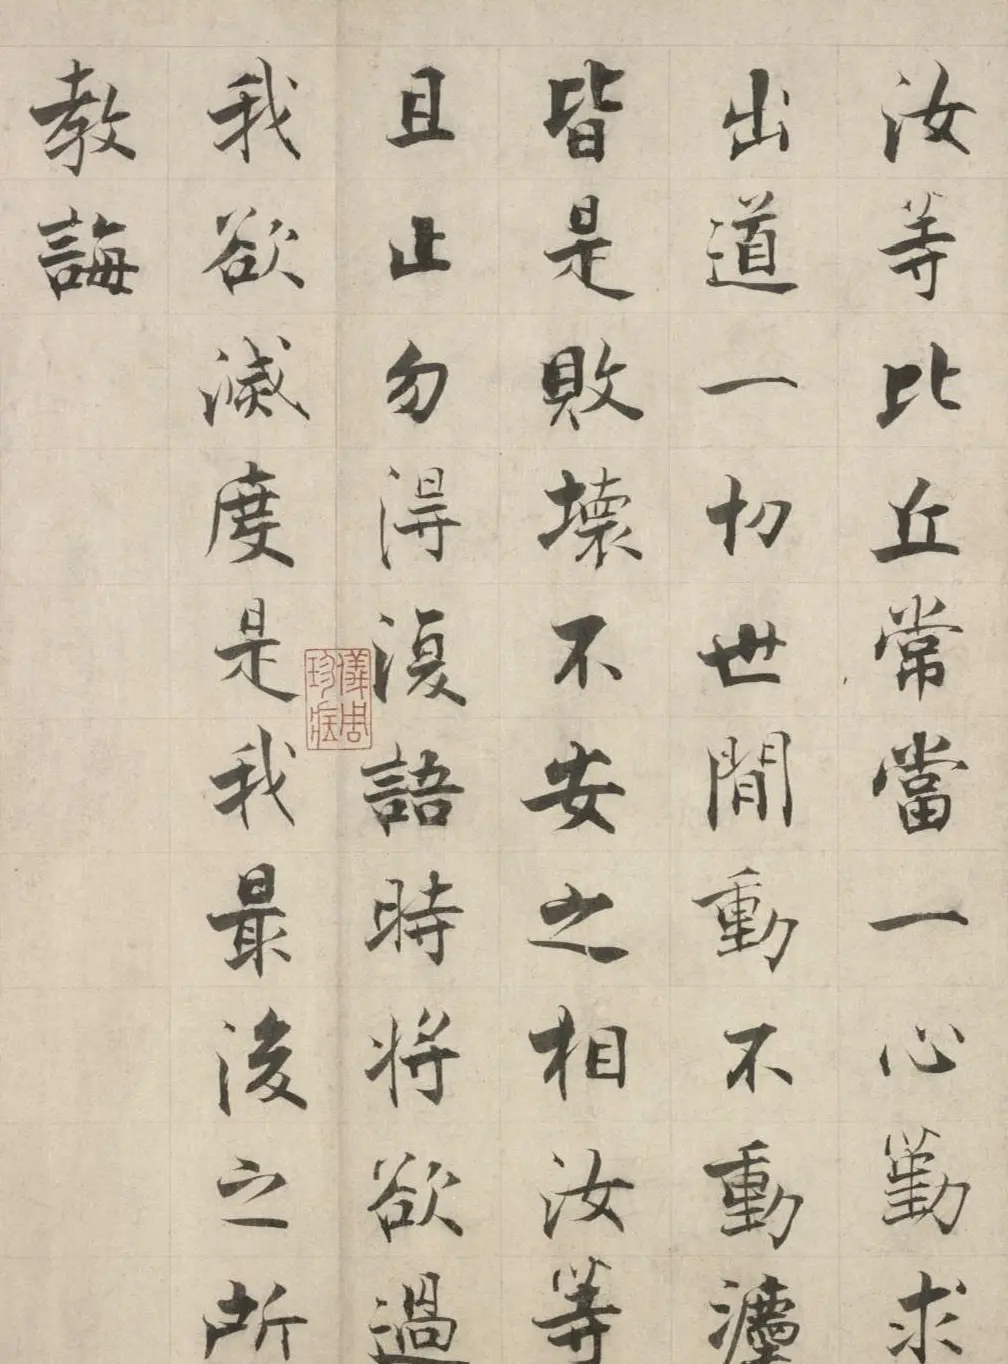 汝等比丘常當一心勤求
出道一切世閒動不動灋
皆是敗壞不安之相汝等
且止勿得復語時將欲過
我欲滅度是我最後之所
教誨
儀周珍藏